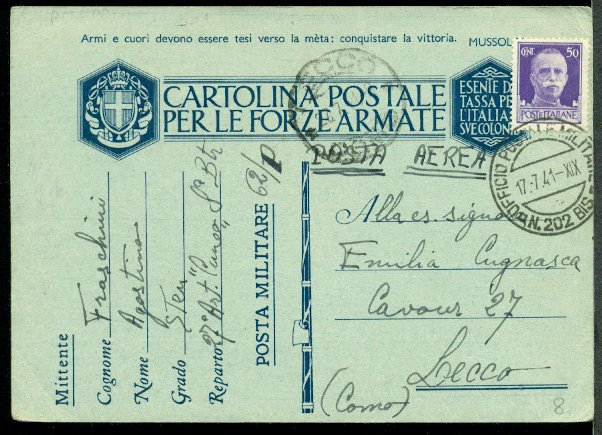 Armi e cuori devono essere tesi verso la mèta: conquistare la vittoria. MUSSOL
CARTOLINA POSTALE
PER LE FORZE ARMATE
ESENTE DA
TASSA PE
L'ITALIA
SVE COLON
CENT. 50
POSTE ITALIANE
LECCO
UFFICIO POSTALE MILITARE
17.7.41-XIX
N. 202 BIS
POSTA AEREA
Mittente
Cognome Fraschini
Nome Agostino
Grado STen
Reparto 27° Art. Cuneo
POSTA MILITARE 62/P
Alla es. signora
Emilia Cugnasca
Cavour 27
Lecco
(Como)
8